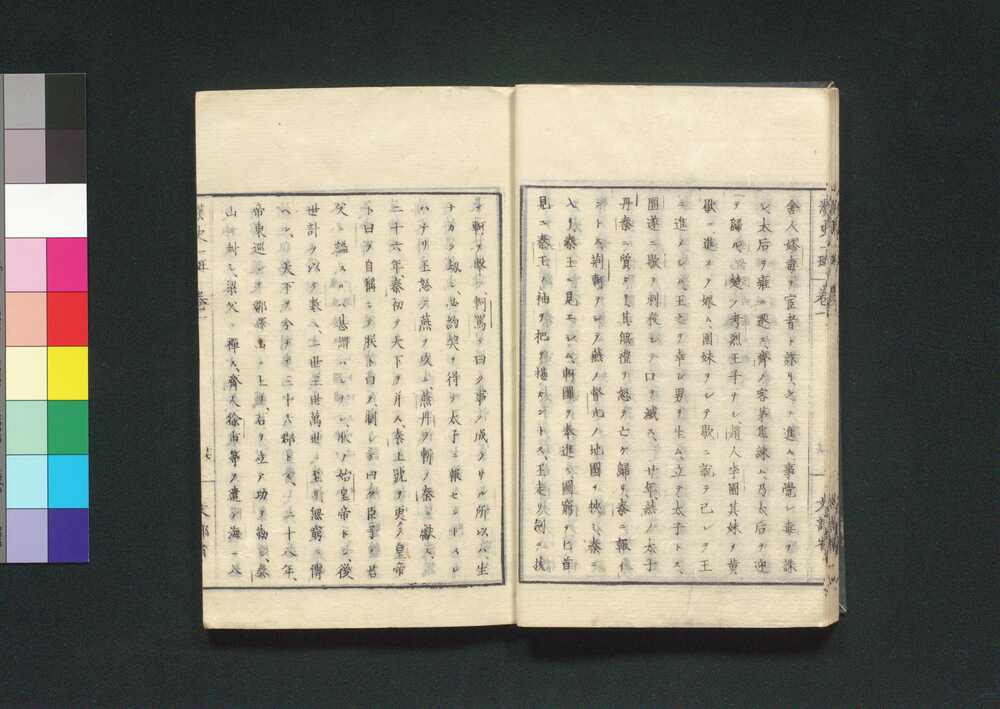 舍人嫪毐ヲ宦者ト詐リ之ヲ進ム事覺レ毐ヲ誅
シ太后ヲ雍ニ遷ス齊ノ客茅焦諫ム乃太后ヲ迎
ヲ歸ル、楚ノ考烈王子ナシ趙人李園其妹ヲ黄
歇ニ進メ娠ム、園妹ヲシテ歇ニ説テ己レヲ王
ニ進メシム王之ヲ幸シ男ヲ生ム、立テ太子トス、
園遂ニ歇ヲ刺殺シテ口ヲ滅ス、二十年燕ノ太子
丹秦ニ質タリ其無禮ヲ怒テ亡ケ歸リ、秦ニ報
ントス荆軻ヲシテ燕ノ督亢ノ地圖ヲ挾ミ秦ニ
入リ秦王ニ見エシム軻圖ヲ奉進ス圖窮テ匕首
見ユ秦王ノ袖ヲ把テ揕ントス、王走リ劍ヲ拔
軻ヲ擊ツ、軻罵テ曰ク事ノ成ラサル所以ハ、生
ナカラ劫シ必約契ヲ得テ太子ニ報セントスレ
ハナリ王怒テ燕ヲ攻ム燕丹ヲ斬テ秦ニ獻ス、
二十六年、秦初テ天下ヲ并ス、秦王號ヲ更テ皇帝
ト曰ヲ自稱シテ朕ト曰ヲ制シテ曰ク臣子ヲ君
父ヲ謚スルハ甚謂ハレナシ、朕ヲ始皇帝トシ後
世計ヲ以テ數ヘ、二世三世萬世ニ至リ無窮ニ傳
ヘン、天下ヲ分チテ三十六郡トス、二十八年、
帝東巡シテ鄒嶧山ニ上リ石ヲ立テ功ヲ勒シ、泰
山ニ封シ、梁父ニ禪ス、齊人徐市等ヲ遣テ海ニ入
漢史一班 卷一
文部省